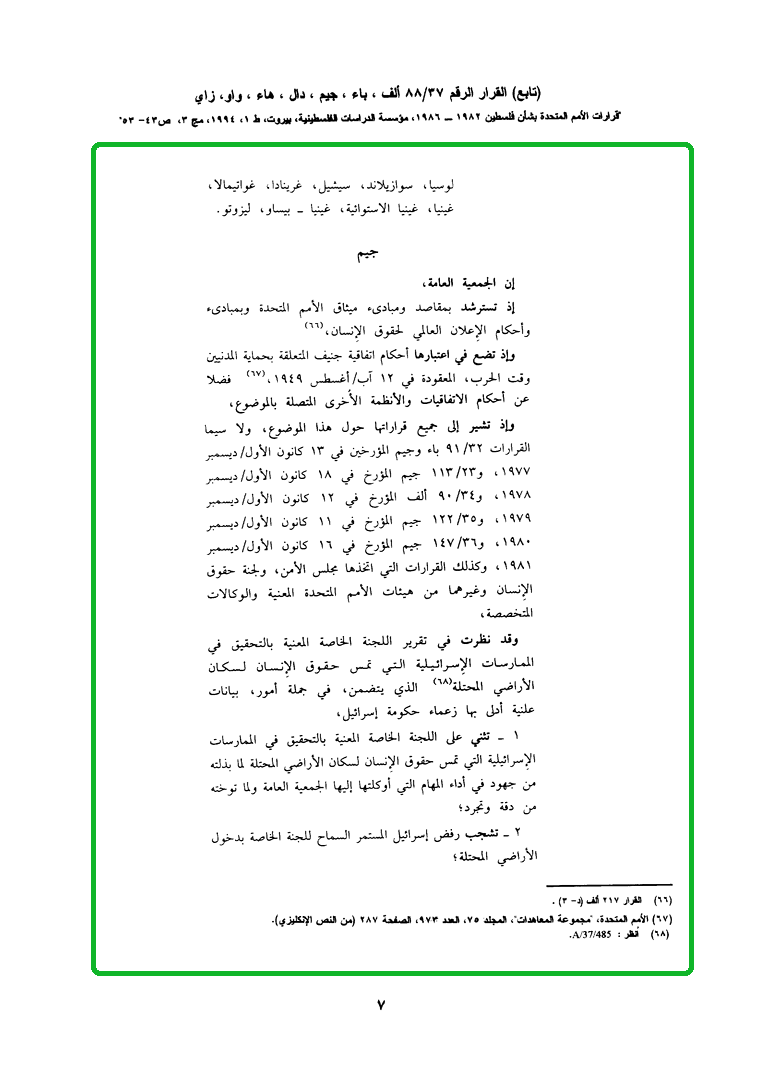 (تابع) القرار الرقم ٨٨/٣٧ ألف ، باء ، جيم ، دال ، هاء ، واو، زاي
"قرارات الأمم المتحدة بشأن فلسطين ١٩٨٢ ــ ١٩٨٦، مؤسسة الدراسات الفلسطينية، بيروت، ط ١، ١٩٩٤، مج ٣، ص٤٣- ٥٣"
لوسيا، سوازيلاند، سيشيل، غرينادا، غواتيمالا،
غينيا، غينيا الاستوائية، غينيا ـ بيساو، ليزوتو.
جيم
إن الجمعية العامة،
إذ تسترشد بمقاصد ومبادىء ميثاق الأمم المتحدة وبمبادىء
وأحكام الإعلان العالمي لحقوق الإنسان،(٦٦)
وإذ تضع في اعتبارها أحكام اتفاقية جنيف المتعلقة بحماية المدنيين
وقت الحرب، المعقودة في ١٢ آب/أغسطس ١٩٤٩،(٦٧) فضلا
عن أحكام الاتفاقيات والأنظمة الأخرى المتصلة بالموضوع،
وإذ تشير إلى جميع قراراتها حول هذا الموضوع، ولا سيما
القرارات ٩١/٣٢ باء وجيم المؤرخين في ١٣ كانون الأول/ديسمبر
١٩٧٧، و١١٣/٢٣ جيم المؤرخ في ١٨ كانون الأول/ديسمبر
١٩٧٨، و٩٠/٣٤ ألف المؤرخ في ١٢ كانون الأول/ديسمبر
١٩٧٩، و١٢٢/٣٥ جيم المؤرخ في ١١ كانون الأول/ديسمبر
١٩٨٠، و١٤٧/٣٦ جيم المؤرخ في ١٦ كانون الأول/ديسمبر
١٩٨١، وكذلك القرارات التي اتخذها مجلس الأمن، ولجنة حقوق
الإنسان وغيرهما من هيئات الأمم المتحدة المعنية والوكالات
المتخصصة،
وقد نظرت في تقرير اللجنة الخاصة المعنية بالتحقيق في
الممارسات الإسرائيلية التي تمس حقوق الإنسان لسكان
الأراضي المحتلة(٦٨) الذي يتضمن، في جملة أمور، بيانات
علنية أدلى بها زعماء حكومة إسرائيل،
١ ـ تثني على اللجنة الخاصة المعنية بالتحقيق في الممارسات
الإسرائيلية التي تمس حقوق الإنسان لسكان الأراضي المحتلة لما بذلته
من جهود في أداء المهام التي أوكلتها إليها الجمعية العامة ولما توخته
من دقة وتجرد؛
٢ ـ تشجب رفض إسرائيل المستمر السماح للجنة الخاصة بدخول
الأراضي المحتلة؛
(٦٦) القرار ٢١٧ ألف (د- ٣) .
(٦٧) الأمم المتحدة، "مجموعة المعاهدات"، المجلد ٧٥، العدد ٩٧٣، الصفحة ٢٨٧ (من النص الإنكليزي).
(٦٨) أنظر : A/37/485.
٧